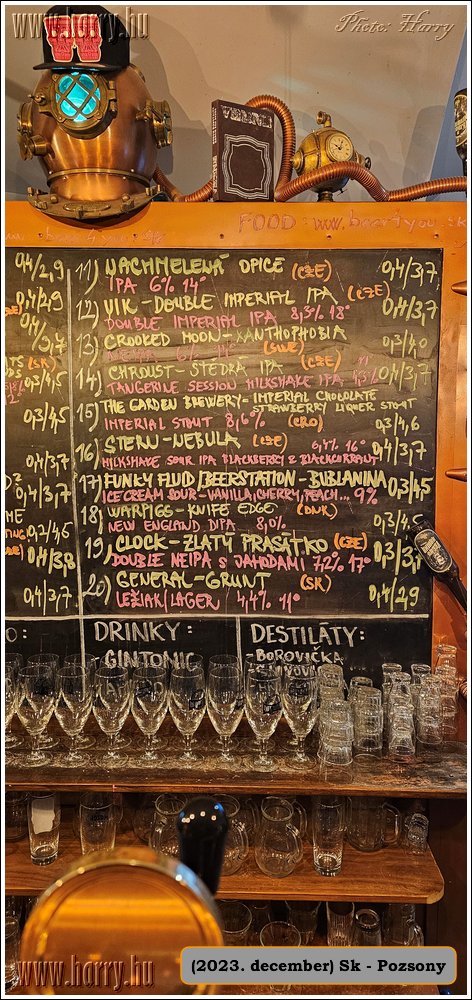 www.horry.hu
Photo: Horry
FOOD: www.beer4you.sk
0,4/2,9
11) NACHMELENÁ OPICE (CZE) 0,4/3,7
IPA 6% 14°
0,4/2,9
12) VIK - DOUBLE IMPERIAL IPA (CZE) 0,4/3,7
DOUBLE IMPERIAL IPA 8,5% 18°
13) CROOKED MOON - XANTHOPHOBIA 0,3/4,0
NEIPA 6% 14° (SWE)
14) CHROUST - ŠTĚDRÁ IPA (CZE) 0,4/3,7
TANGERINE SESSION MILKSHAKE IPA
15) THE GARDEN BREWERY - IMPERIAL CHOCOLATE
STRAWBERRY LIQUER STOUT
0,3/4,5
IMPERIAL STOUT 8,6% (CRO) 0,3/4,6
16) STERN - NEBULA (CZE) 6,4% 16° 0,4/3,7
MILKSHAKE SOUR IPA BLACKBERRY & BLACKCURRANT
0,3/3,7
17) FUNKY FLUID/BEERSTATION - BUBLANINA 0,3/4,5
0,4/3,7
ICE CREAM SOUR - VANILLA, CHERRY, PEACH... 9%
18) WARPIGS - KNIFE EDGE (DNK)
0,2/4,5
NEW ENGLAND DIPA 8,0%
0,4/3,8
19) CLOCK - ZLATÝ PRASÁTKO (CZE) 0,3/3,7
DOUBLE NEIPA S JAHODAMI 7,2% 17°
0,4/3,7
20) GENERAL - GRUNT (SK) 0,4/2,9
LEŽIAK/LAGER 4,4% 11°
O:
DRINKY:
DESTILÁTY:
GINTONIC
- BOROVIČKA
www.horry.hu
(2023. december) Sk - Pozsony
www.horry.hu